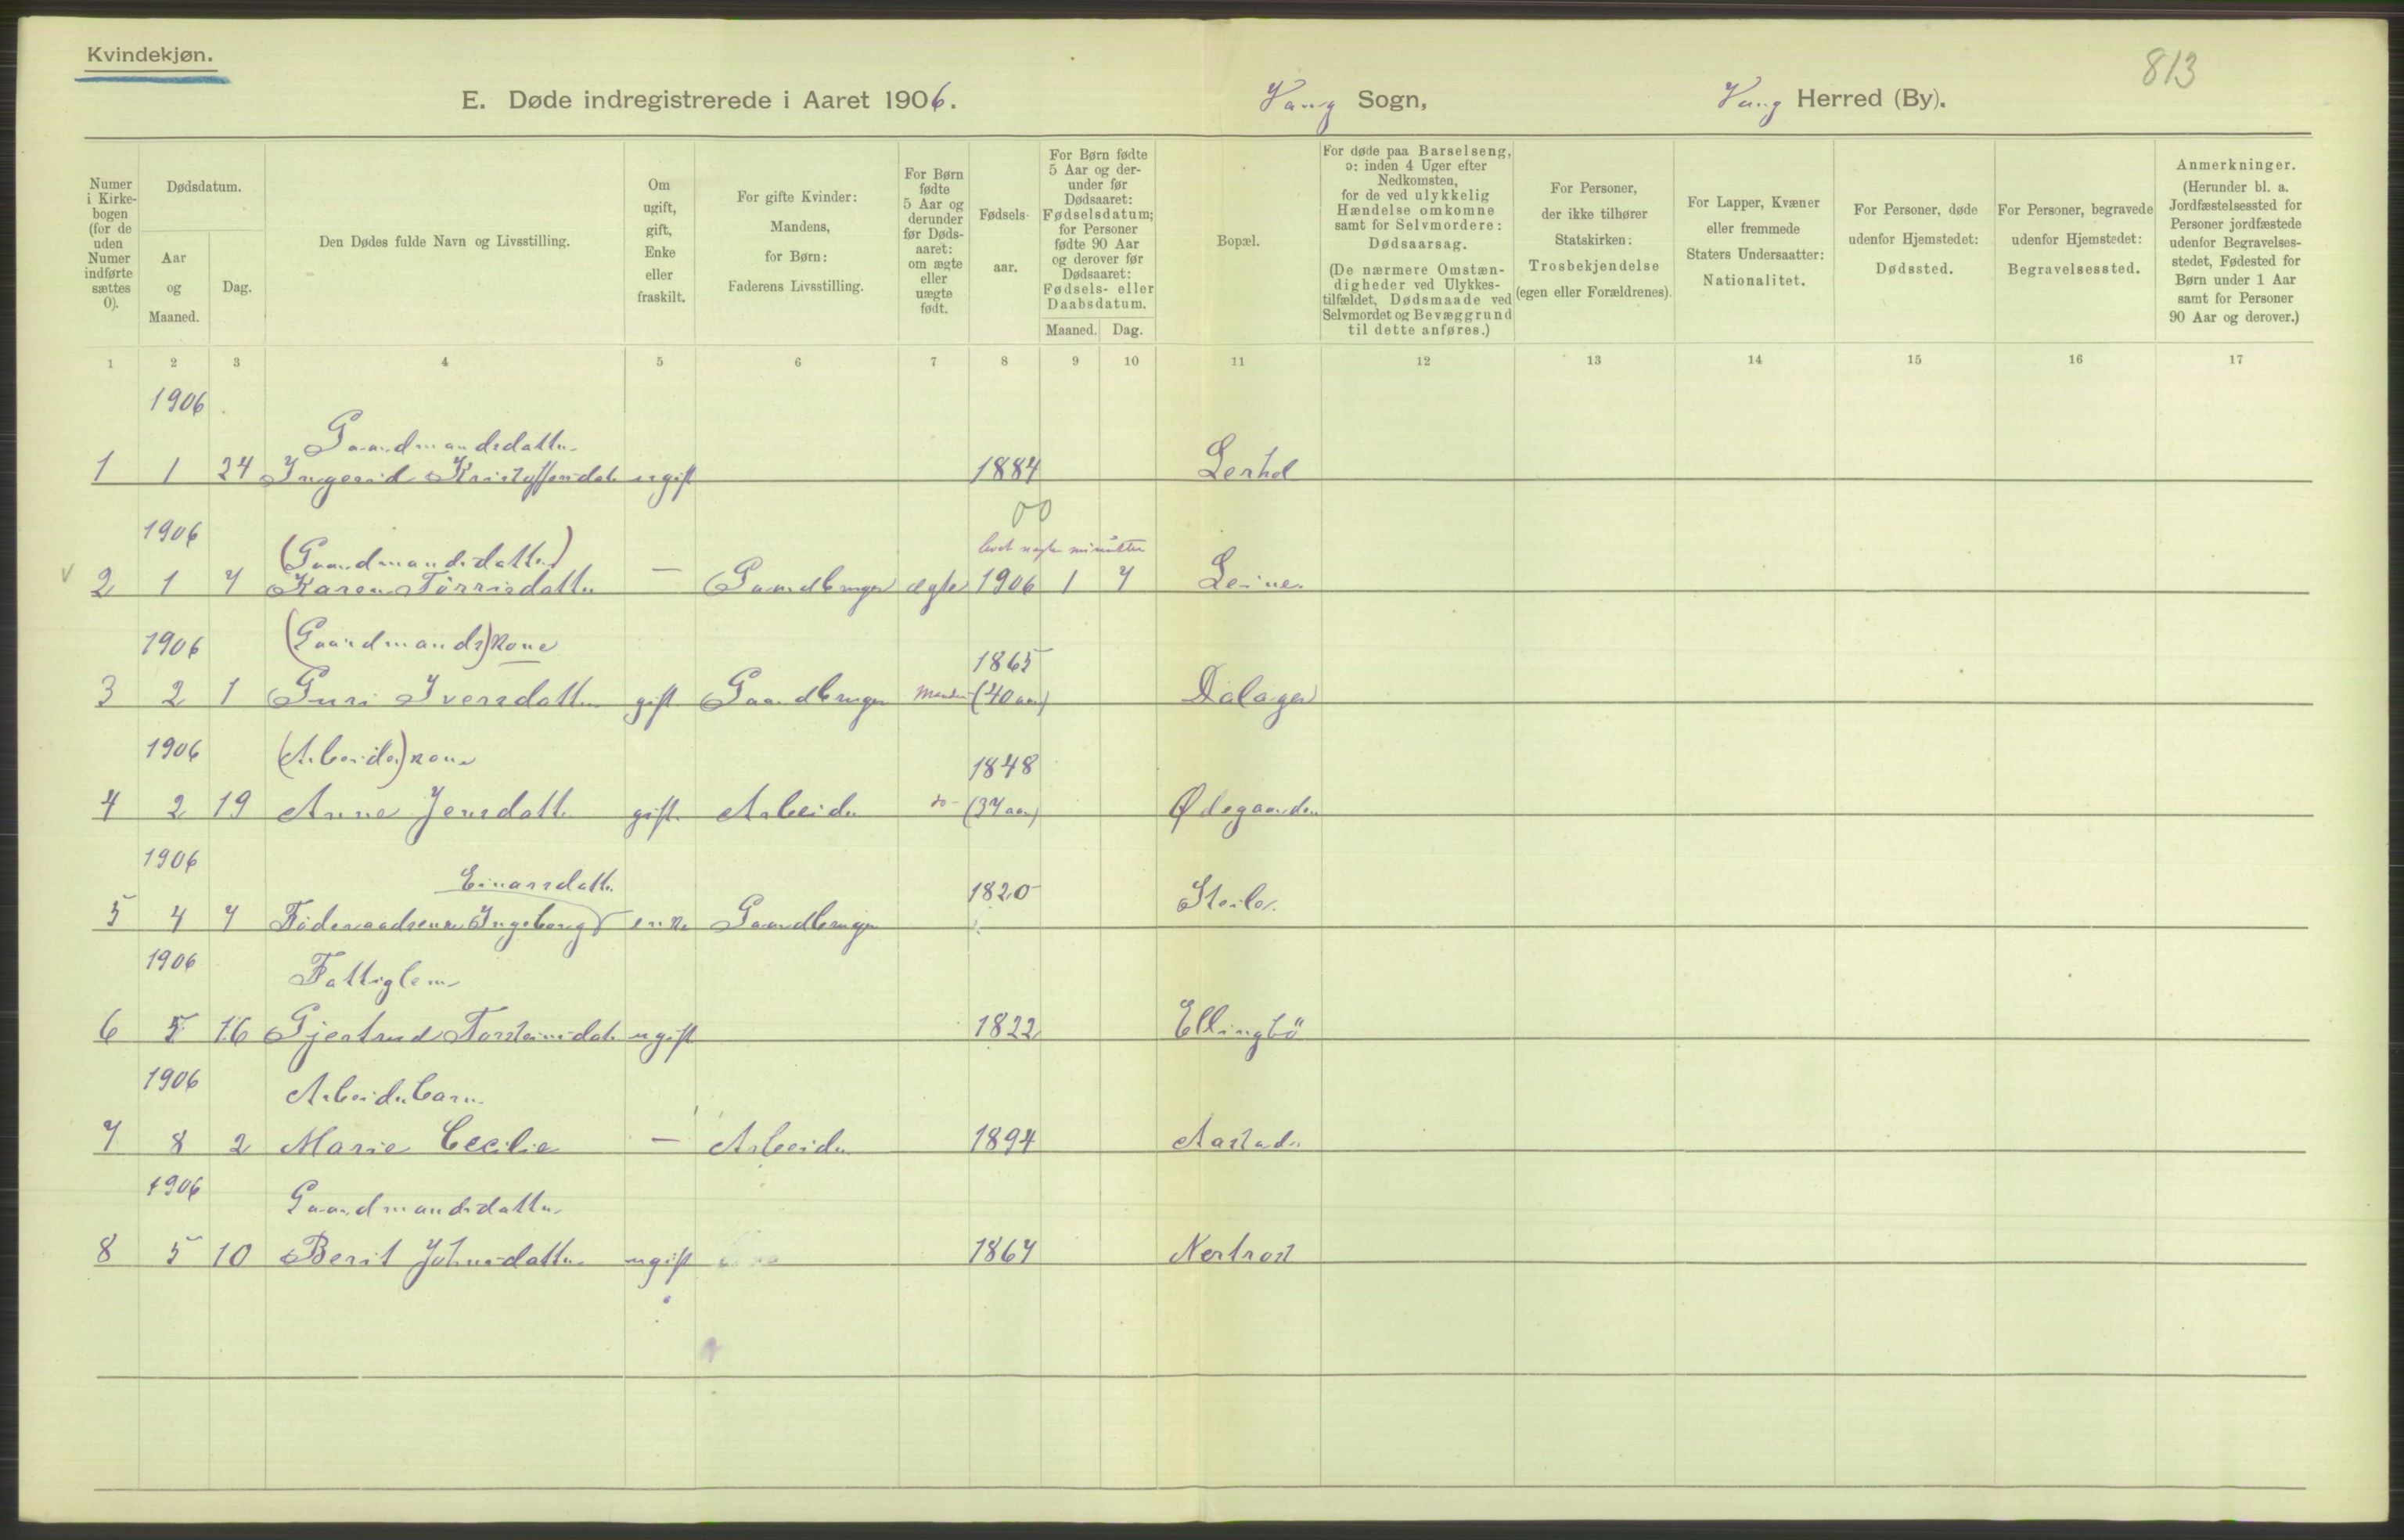 Kvindekjøn.
813
E. Døde indregistrerede i Aaret 1906. Vang Sogn, Vang Herred (By).
Numer i Kirke-bogen (for de uden Numer indførte sættes 0).
Dødsdatum.
Aar og Maaned.
Dag.
Den Dødes fulde Navn og Livsstilling.
Om ugift, gift, Enke eller fraskilt.
For gifte Kvinder: Mandens, for Børn: Faderens Livsstilling.
For Børn fødte 5 Aar og derunder før Døds-aaret: om ægte eller uægte født.
Fødsels-aar.
For Børn fødte 5 Aar og der-under før Dødsaaret: Fødselsdatum; for Personer fødte 90 Aar og derover før Dødsaaret: Fødsels- eller Daabsdatum.
Maaned. Dag.
Bopæl.
For døde paa Barselseng, ɔ: inden 4 Uger efter Nedkomsten, for de ved ulykkelig Hændelse omkomne samt for Selvmordere: Dødsaarsag.
(De nærmere Omstæn-digheder ved Ulykkes-tilfældet, Dødsmaade ved Selvmordet og Bevæggrund til dette anføres.)
For Personer, der ikke tilhører Statskirken: Trosbekjendelse (egen eller Forældrenes).
For Lapper, Kvæner eller fremmede Staters Undersaatter: Nationalitet.
For Personer, døde udenfor Hjemstedet: Dødssted.
For Personer, begravede udenfor Hjemstedet: Begravelsessted.
Anmerkninger. (Herunder bl. a. Jordfæstelsessted for Personer jordfæstede udenfor Begravelses-stedet, Fødested for Børn under 1 Aar samt for Personer 90 Aar og derover.)
1 2 3 4 5 6 7 8 9 10 11 12 13 14 15 16 17
1906
Gaardmandsdatter
1 1 24 Ingerid Kristoffersdatr ugift 1884 Lerhol
00
1906 (Gaardmandsdatter) levet nogle minutter
2 1 7 Karen Törrisdatter — Gaardbruger ægte 1906 1 7 Leine
1906 (Gaardmands)kone 1865
3 2 1 Guri Iversdatter gift Gaardbruger Manden (40 aar) Dalager
1906 (Arbeider)kone 1848
4 2 19 Anne Jensdatter gift Arbeider do- (37 aar) Ødegaarden
1906 Einarsdatter 1820
5 4 7 Föderaadsenke Ingeborg enke Gaardbruger Steile
1906 Fattiglem
6 5 16 Gjertrud Torsteinsdatr ugift 1822 Ellingbö
1906 Arbeiderbarn
7 8 2 Marie Cecilie — Arbeider 1894 Aastad
1906 Gaardmandsdatter
8 5 10 Berit Johnsdatter ugift 1867 Nertrost